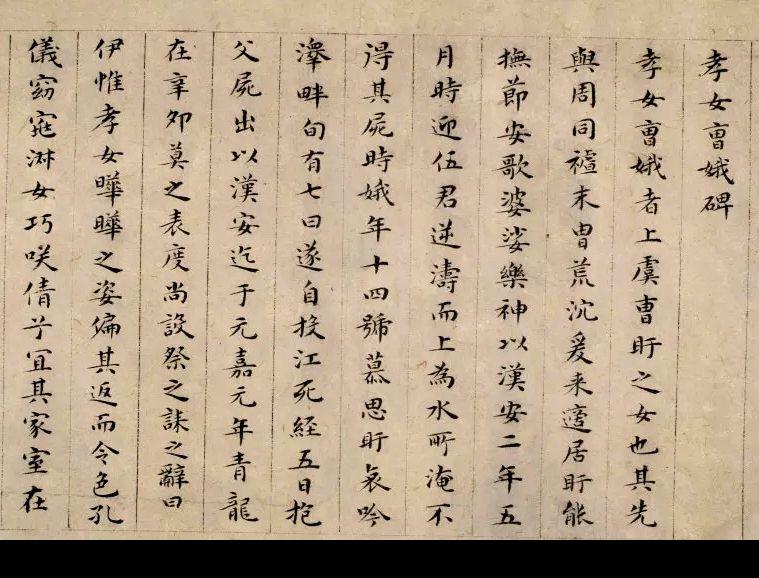 孝女曹娥碑
孝女曹娥者上虞曹盱之女也其先
與周同禋末胄荒沉爰来適居盱能
撫節安歌婆娑樂神以漢安二年五
月時迎伍君逆濤而上為水所淹不
得其屍時娥年十四號慕思盱哀吟
澤畔旬有七日遂自投江死經五日抱
父屍出以漢安迄于元嘉元年青龍
在辛卯莫之表度尚設祭之誄之辭曰
伊惟孝女曄曄之姿偏其返而令色孔
儀窈窕淑女巧咲倩兮宜其家室在